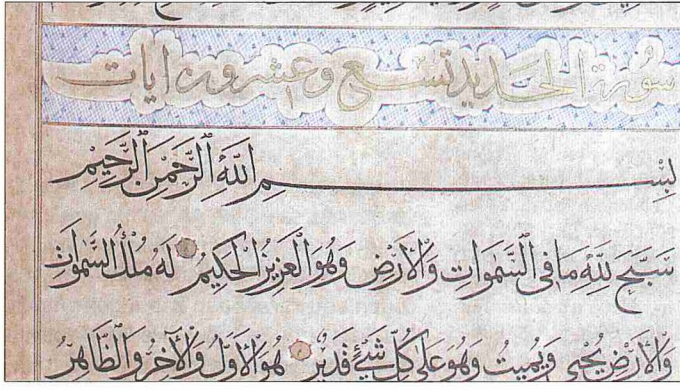 سورة الحديد تسع وعشرون ايات
بِسْمِ اللَّهِ الرَّحْمَنِ الرَّحِيمِ
سَبَّحَ لِلَّهِ مَا فِي السَّمَوَاتِ وَالْأَرْضِ وَهُوَ الْعَزِيزُ الْحَكِيمُ لَهُ مُلْكُ السَّمَوَاتِ
وَالْأَرْضِ يُحْيِي وَيُمِيتُ وَهُوَ عَلَى كُلِّ شَيْءٍ قَدِيرٌ هُوَ الْأَوَّلُ وَالْآخِرُ وَالظَّاهِرُ